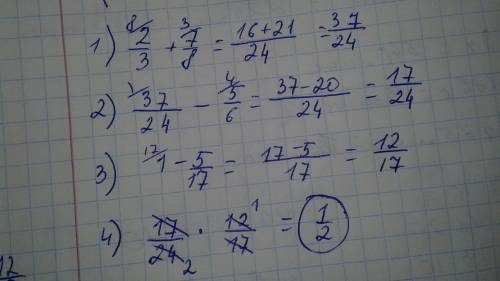 1) ⁸⁄2/3 + ³⁄7/8 = 16+21/24 = 37/24
2) ¹⁄37/24 − ⁴⁄5/6 = 37−20/24 = 17/24
3) ¹⁷⁄1 − 5/17 = 17−5/17 = 12/17
4) 17/24 2 · 12 1/17 = 1/2
12